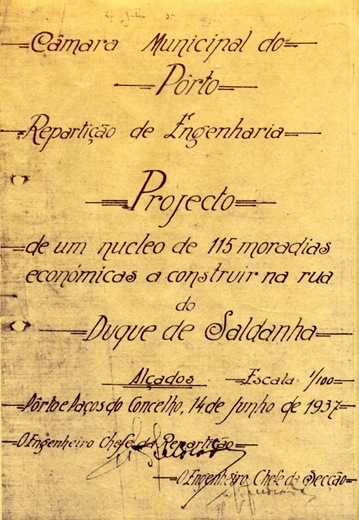 Câmara Municipal do
Pôrto
Repartição de Engenharia
Projecto
de um nucleo de 115 moradias
económicas a construir na rua
do
Duque de Saldanha
Alçados Escala 1/100
Pôrto e Paços do Concelho, 14 de Junho de 1937
O Engenheiro Chefe da Repartição
O Engenheiro Chefe da Secção